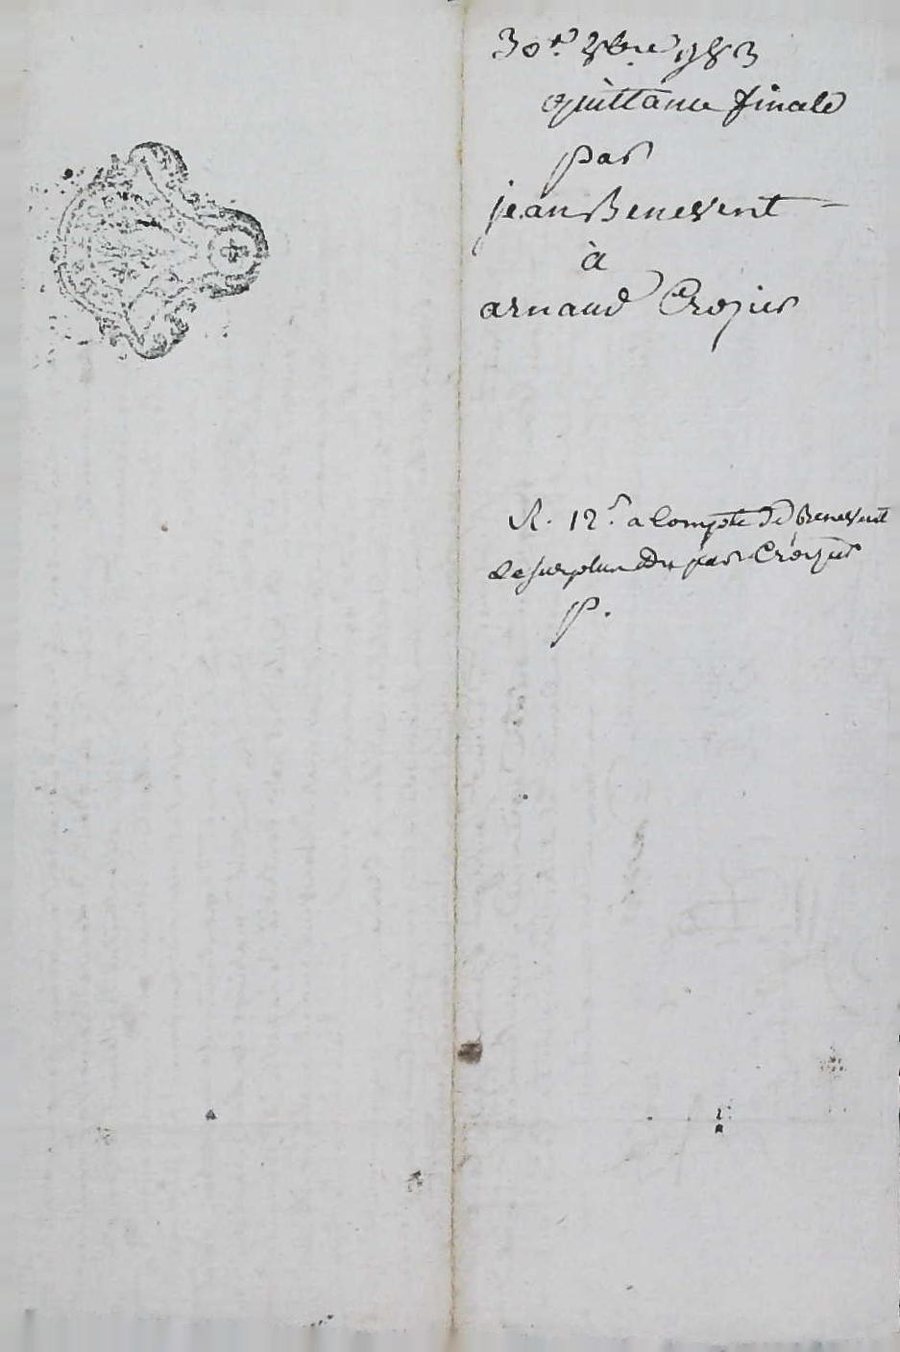 30e 8bre 1783
quittance finale
par
jean Benevent
à
arnaud Crozier
R. 12s a Compte de Benevent
Le surplus du par Crozier
p.